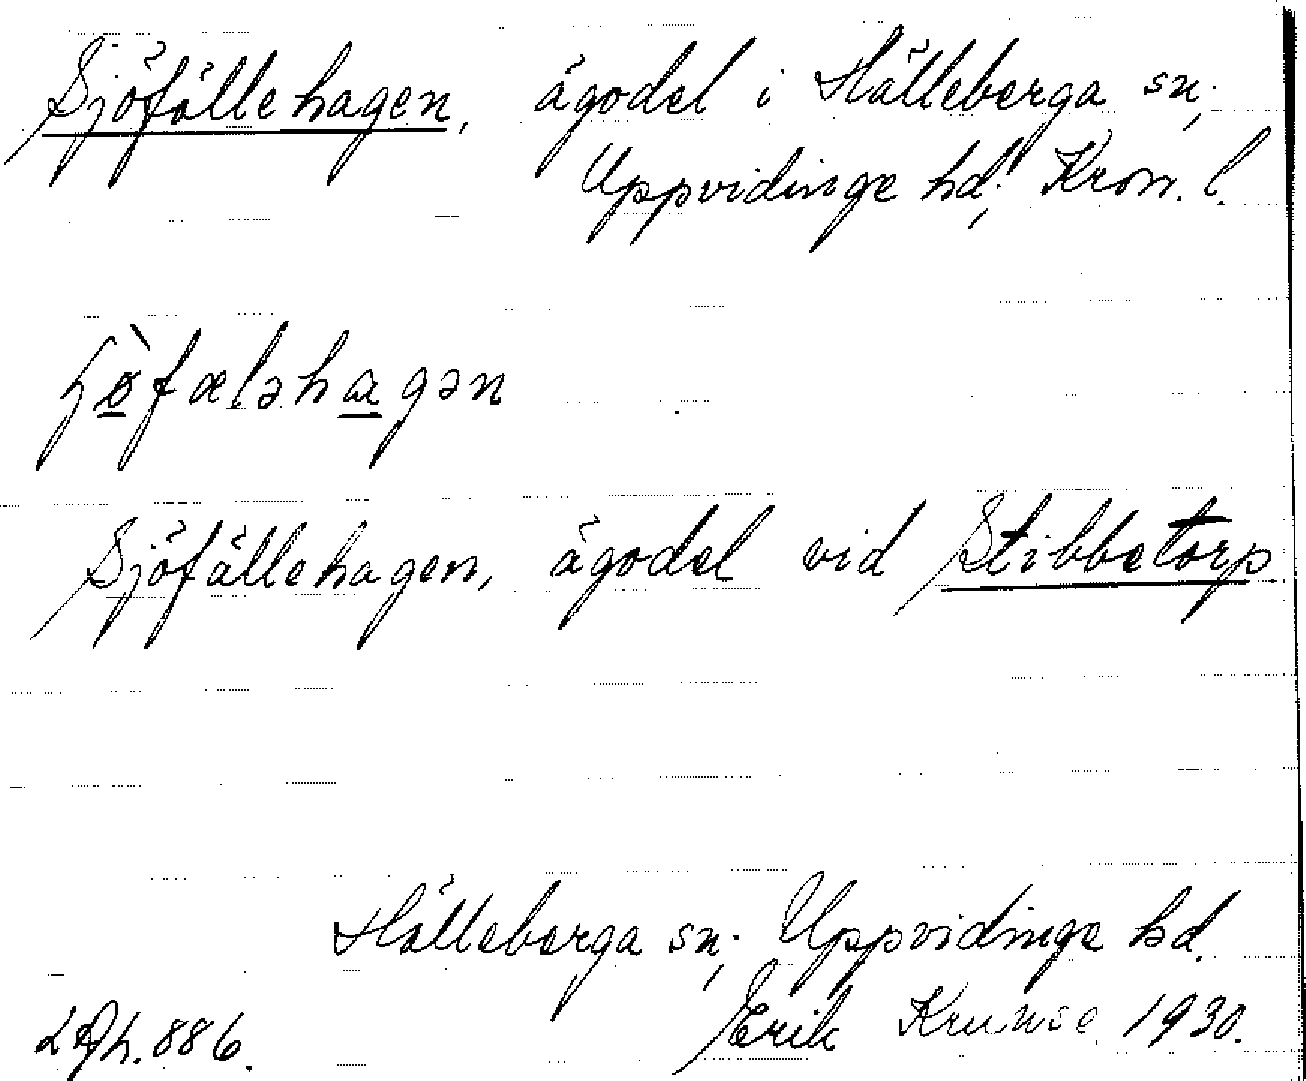 Sjöfällehagen, ägodel i Hälleberga sn,
Uppvidinge hd, Kron. l.
Sjöfällehagen, ägodel vid Stibbetorp
Hälleberga sn, Uppvidinge hd.
886. Erik Kruuse 1930.